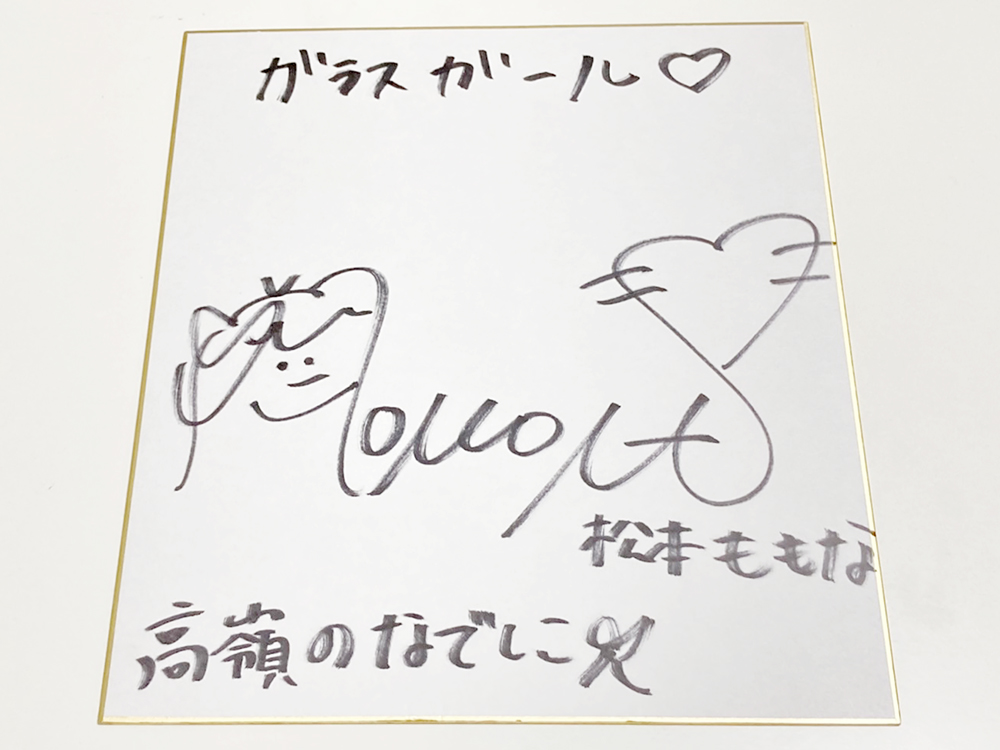 ガラスガール♡
松本ももな
高嶺のなでしこ